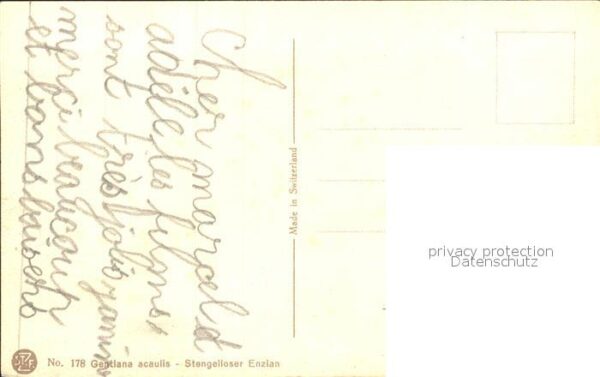 Cher marcel d
adèle les films
sont très jolis janine
merci beaucoup
et bons baisers
Made in Switzerland
privacy protection
Datenschutz
No. 178 Gentiana acaulis - Stengelloser Enzian